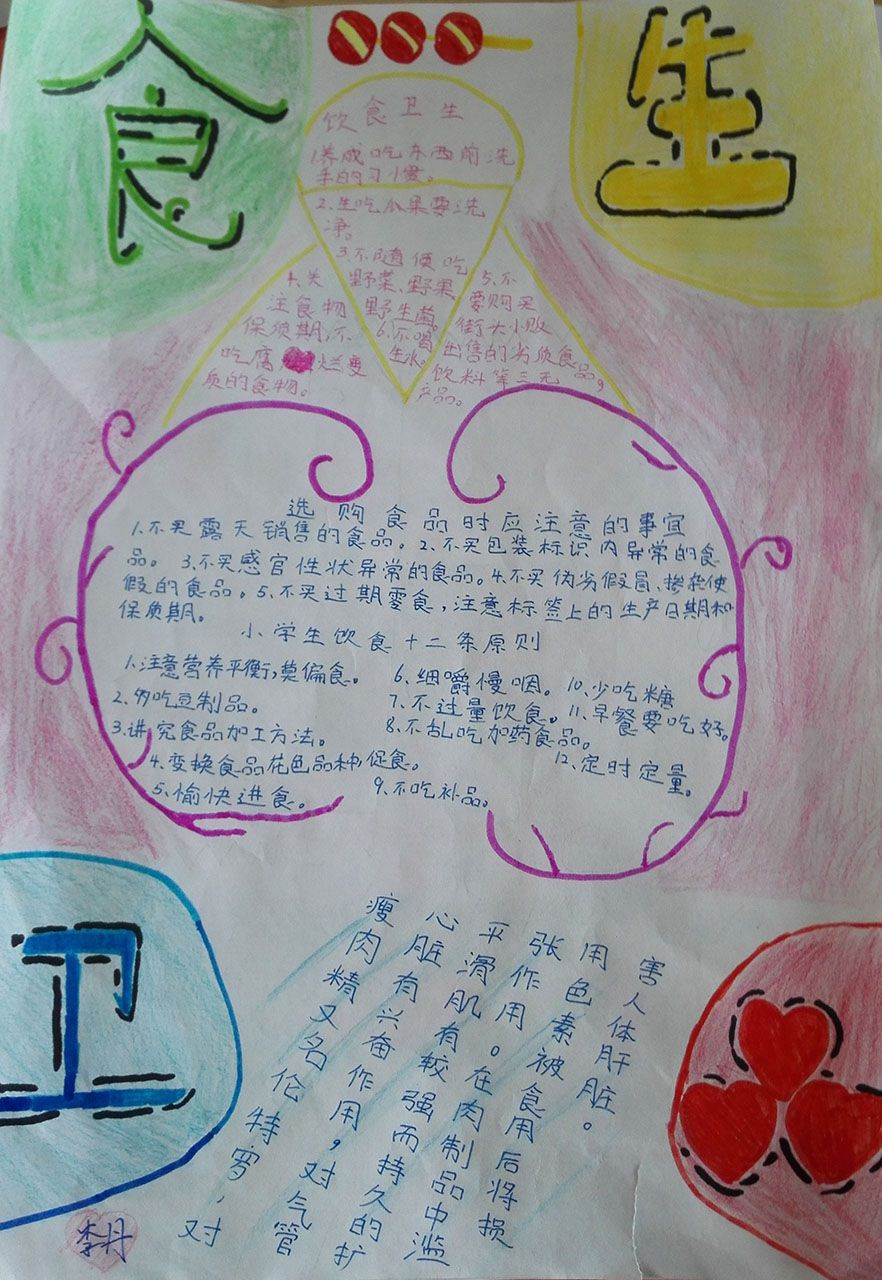 食
生
饮食卫生
1.养成吃东西前洗
手的习惯。
2.生吃瓜果要洗
净。
3.不随便吃
野菜、野果
野生菌。
4.关
注食物
保质期,不
吃腐烂变
质的食物。
5.不
要购买
街头小贩
出售的劣质食品,
饮料等三无
产品。
6.不喝
生水。
选购食品时应注意的事宜
1.不买露天销售的食品。2.不买包装标识内异常的食
品。3.不买感官性状异常的食品。4.不买伪劣假冒、掺杂使
假的食品。5.不买过期零食,注意标签上的生产日期和
保质期。
小学生饮食十二条原则
1.注意营养平衡,莫偏食。
2.多吃豆制品。
3.讲究食品加工方法。
4.变换食品花色品种,促食。
5.愉快进食。
6.细嚼慢咽。
7.不过量饮食。
8.不乱吃加药食品。
9.不吃补品。
10.少吃糖
11.早餐要吃好。
12.定时定量。
瘦肉精又名伦特罗,对
心脏有兴奋作用,对气管
平滑肌有较强而持久的扩
张作用。在肉制品中滥
用色素被食用后将损
害人体肝脏。
卫
李丹